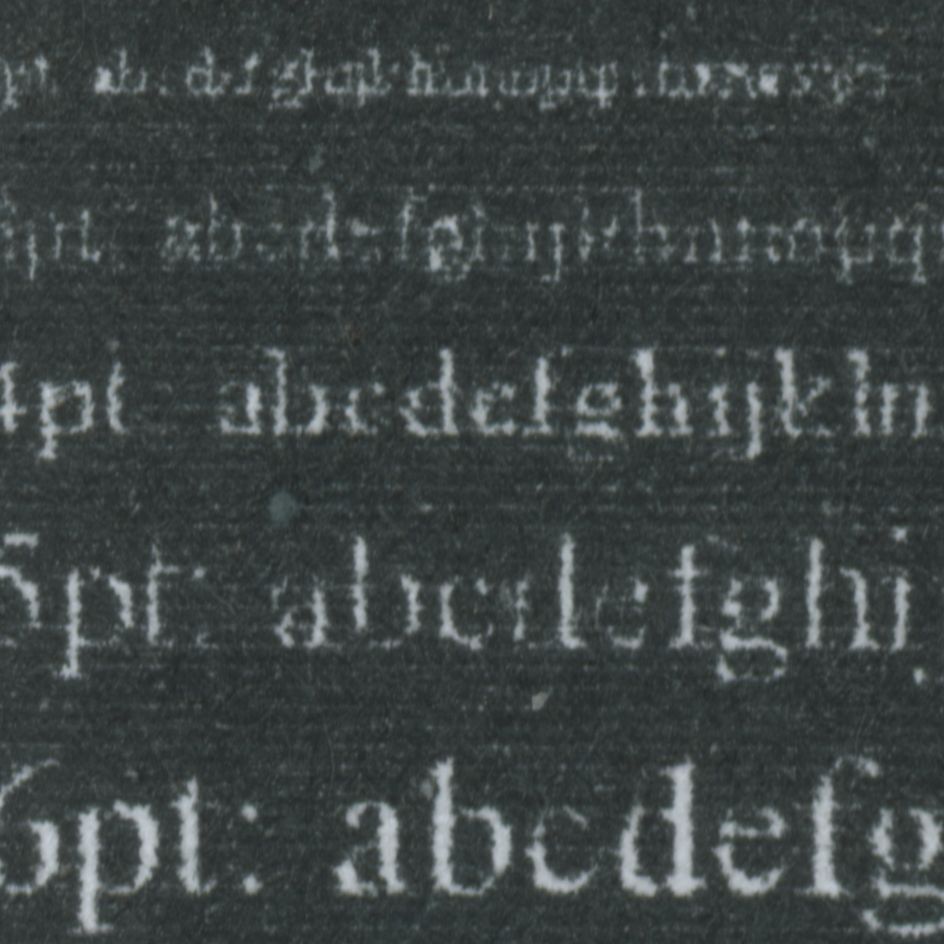 pt abcdefghijklmnopqrstuvwxyz
pt: abcdefghijklmnopq
4pt: abcdefghijklm
5pt: abcdefghij
6pt: abcdefg